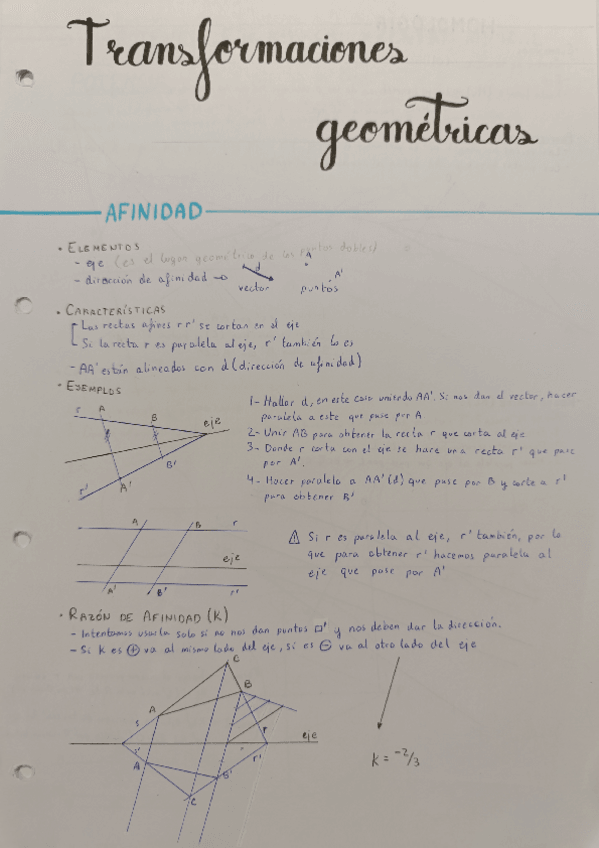 Transformaciones
geométricas
AFINIDAD
• ELEMENTOS
- eje (es el lugar geométrico de los puntos dobles)
- dirección de afinidad → d vector A A' puntos
• CARACTERÍSTICAS
Las rectas afines r r' se cortan en el eje
Si la recta r es paralela al eje, r' también lo es
- AA' están alineados con d (dirección de afinidad)
• EJEMPLOS
r A B eje
B'
r' A'
1- Hallar d, en este caso uniendo AA'. Si nos dan el vector, hacer
paralela a este que pase por A
2- Unir AB para obtener la recta r que corta al eje
3- Donde r corta con el eje se hace una recta r' que pase
por A'.
4- Hacer paralela a AA' (d) que pase por B y corte a r'
para obtener B'
A B r
eje
A' B' r'
⚠ Si r es paralela al eje, r' también, por lo
que para obtener r' hacemos paralela al
eje que pase por A'
• RAZÓN DE AFINIDAD (K)
- Intentamos usarla solo si no nos dan puntos □' y nos deben dar la dirección.
- Si K es ⊕ va al mismo lado del eje, si es ⊖ va al otro lado del eje
C
B
s A
r eje
s' r'
A' B'
C
K = -2/3